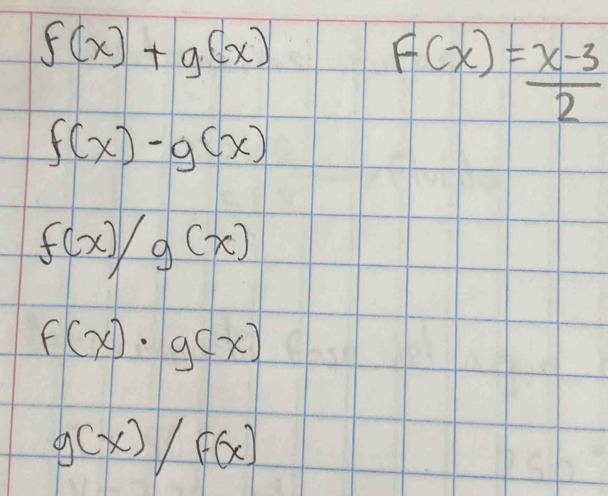 f(x) + g(x)
F(x) = x-3
2
f(x) - g(x)
f(x) / g(x)
f(x) · g(x)
g(x) / f(x)